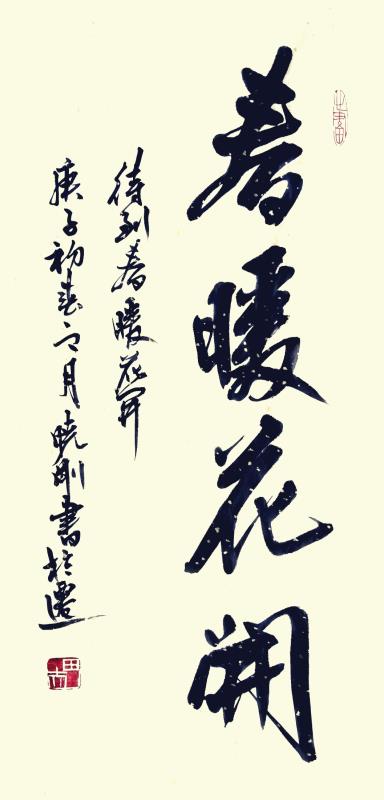 春暖花開
待到春暖花開
庚子初春二月曉剛書於遷